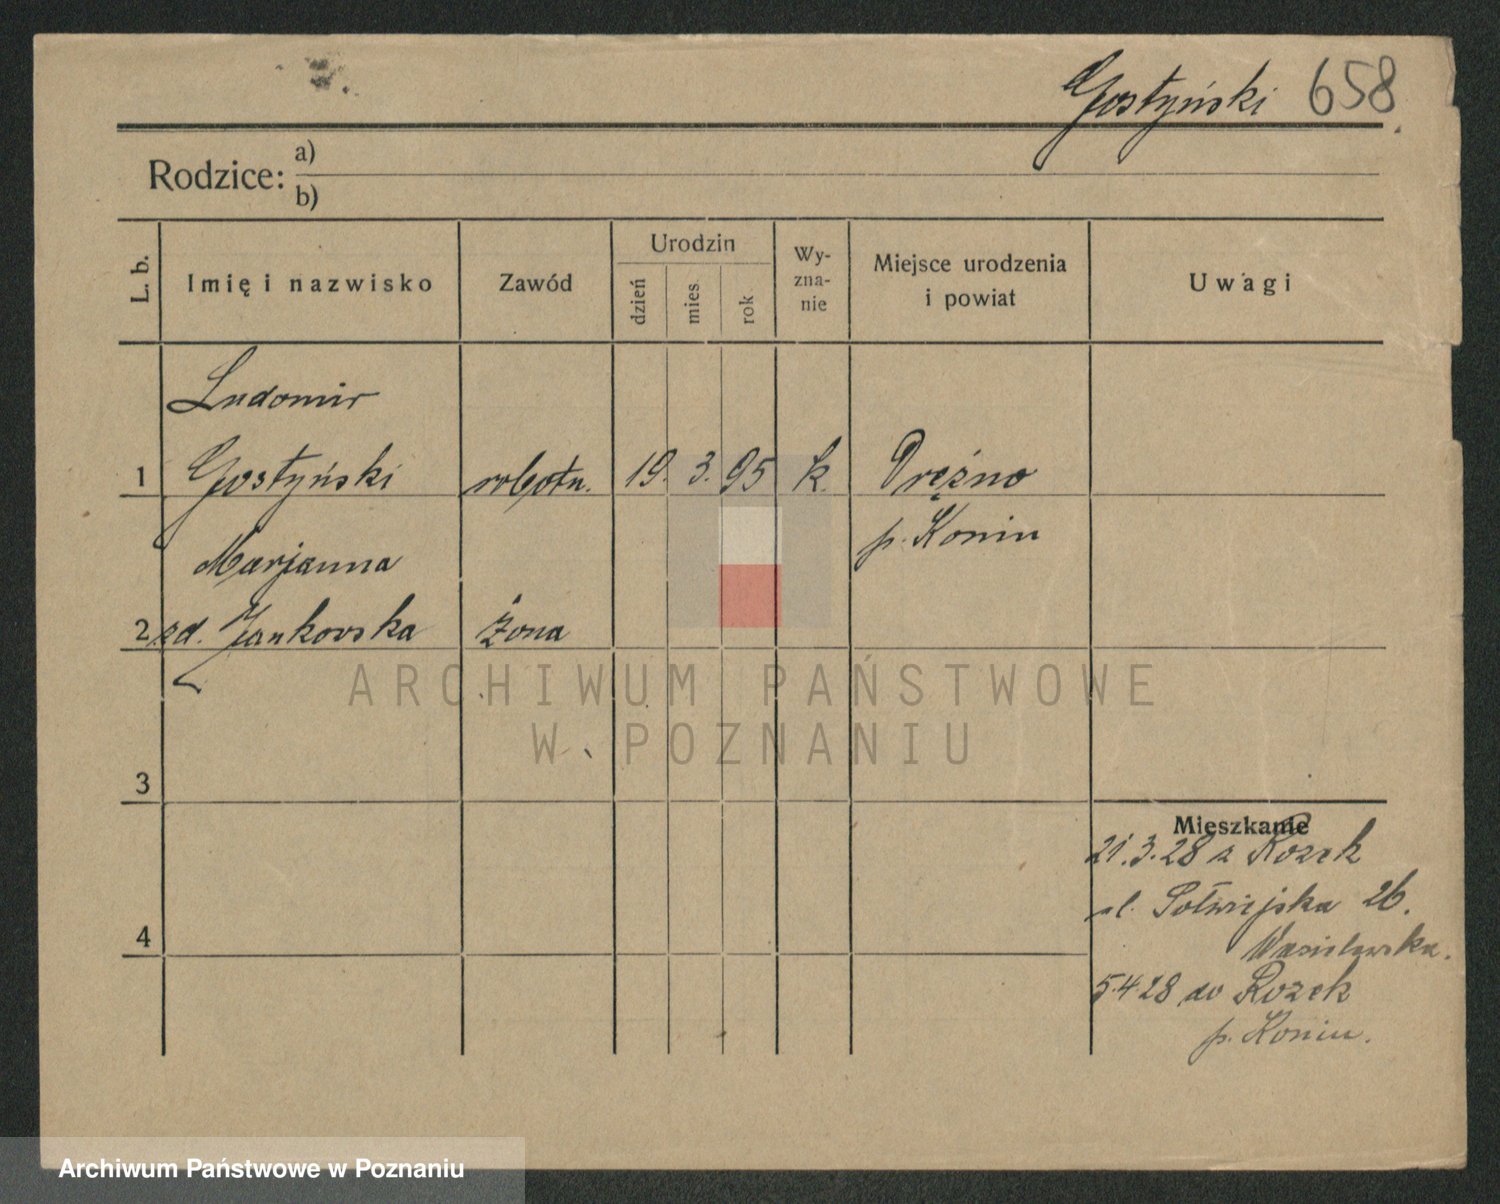 Gostyński 658
Rodzice: a)
b)
L. b.
Imię i nazwisko
Zawód
Urodzin
dzień
mies.
rok
Wy-
zna-
nie
Miejsce urodzenia
i powiat
Uwagi
Ludomir
1 Gostyński robotn. 19. 3. 95 k. Drężno
p. Konin
Marjanna
2 zd. Jankowska żona
ARCHIWUM PAŃSTWOWE
W POZNANIU
3
Mieszkanie
21.3.28 z Rozek
ul. Półwiejska 26.
Wasielewska.
4
5.4.28 do Rozek
p. Konin.
Archiwum Państwowe w Poznaniu